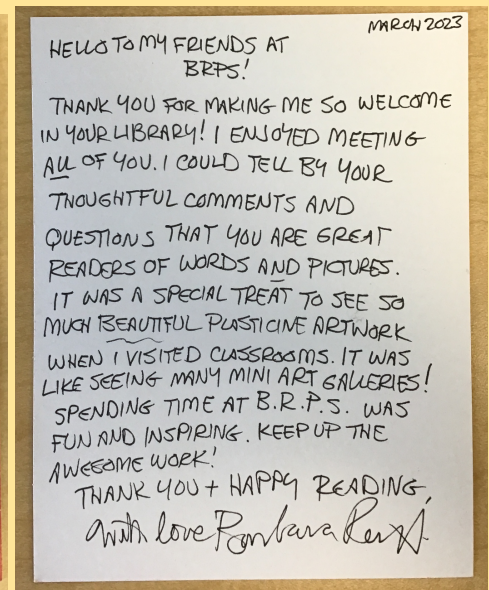 MARCH 2023
HELLO TO MY FRIENDS AT
BRPS!
THANK YOU FOR MAKING ME SO WELCOME
IN YOUR LIBRARY! I ENJOYED MEETING
ALL OF YOU. I COULD TELL BY YOUR
THOUGHTFUL COMMENTS AND
QUESTIONS THAT YOU ARE GREAT
READERS OF WORDS AND PICTURES.
IT WAS A SPECIAL TREAT TO SEE SO
MUCH BEAUTIFUL PLASTICINE ARTWORK
WHEN I VISITED CLASSROOMS. IT WAS
LIKE SEEING MANY MINI ART GALLERIES!
SPENDING TIME AT B.R.P.S. WAS
FUN AND INSPIRING. KEEP UP THE
AWESOME WORK!
THANK YOU + HAPPY READING,
With love Barbara Reid.